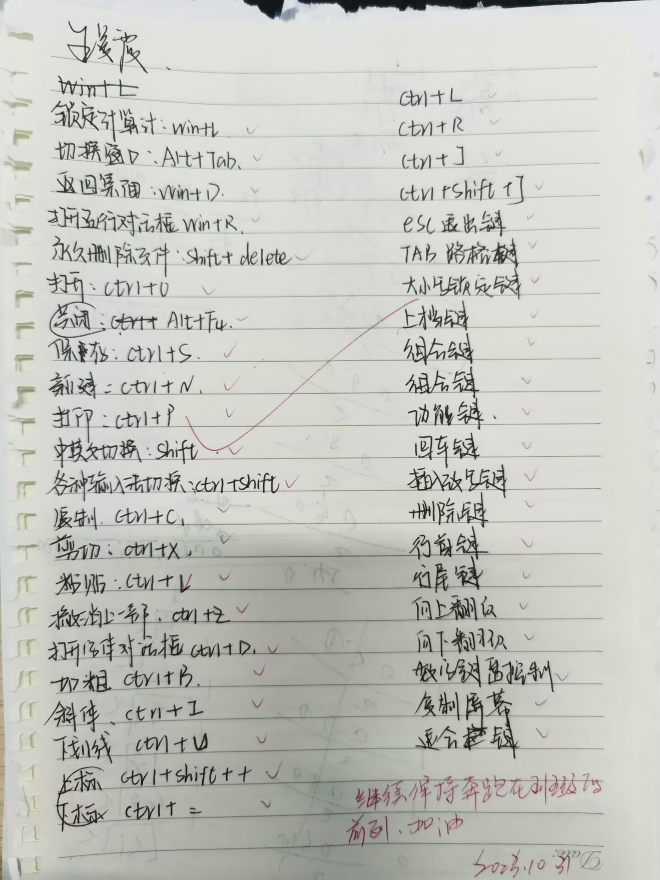 王
Win+L
锁定计算计:win+L
切换窗口:Alt+Tab.
返回桌面:win+D.
打开运行对话框 win+R.
永久删除文件:shift+delete
打开:ctrl+O
关闭:ctrl+ Alt+F4.
保存:ctrl+S.
新建:ctrl+N.
打印:ctrl+P
中英文切换:shift
各种输入法切换:ctrl+shift
复制 ctrl+C.
剪切:ctrl+X.
粘贴:ctrl+V
撤消上一步:ctrl+Z
打开字体对话框 ctrl+D.
加粗 ctrl+B.
斜体 ctrl+I
下划线 ctrl+U
上标 ctrl+shift++
下标 ctrl+=
ctrl+L
ctrl+R
ctrl+]
ctrl+shift+]
esc退出键
TAB 键
大小写锁定键
上档键
组合键
组合键
功能键.
回车键
插入改写键
删除键
行首键
行尾键
向上翻页
向下翻页
数字键
复制屏幕
键
继续保持奔跑在班级的
前列.加油
10.31
Date.